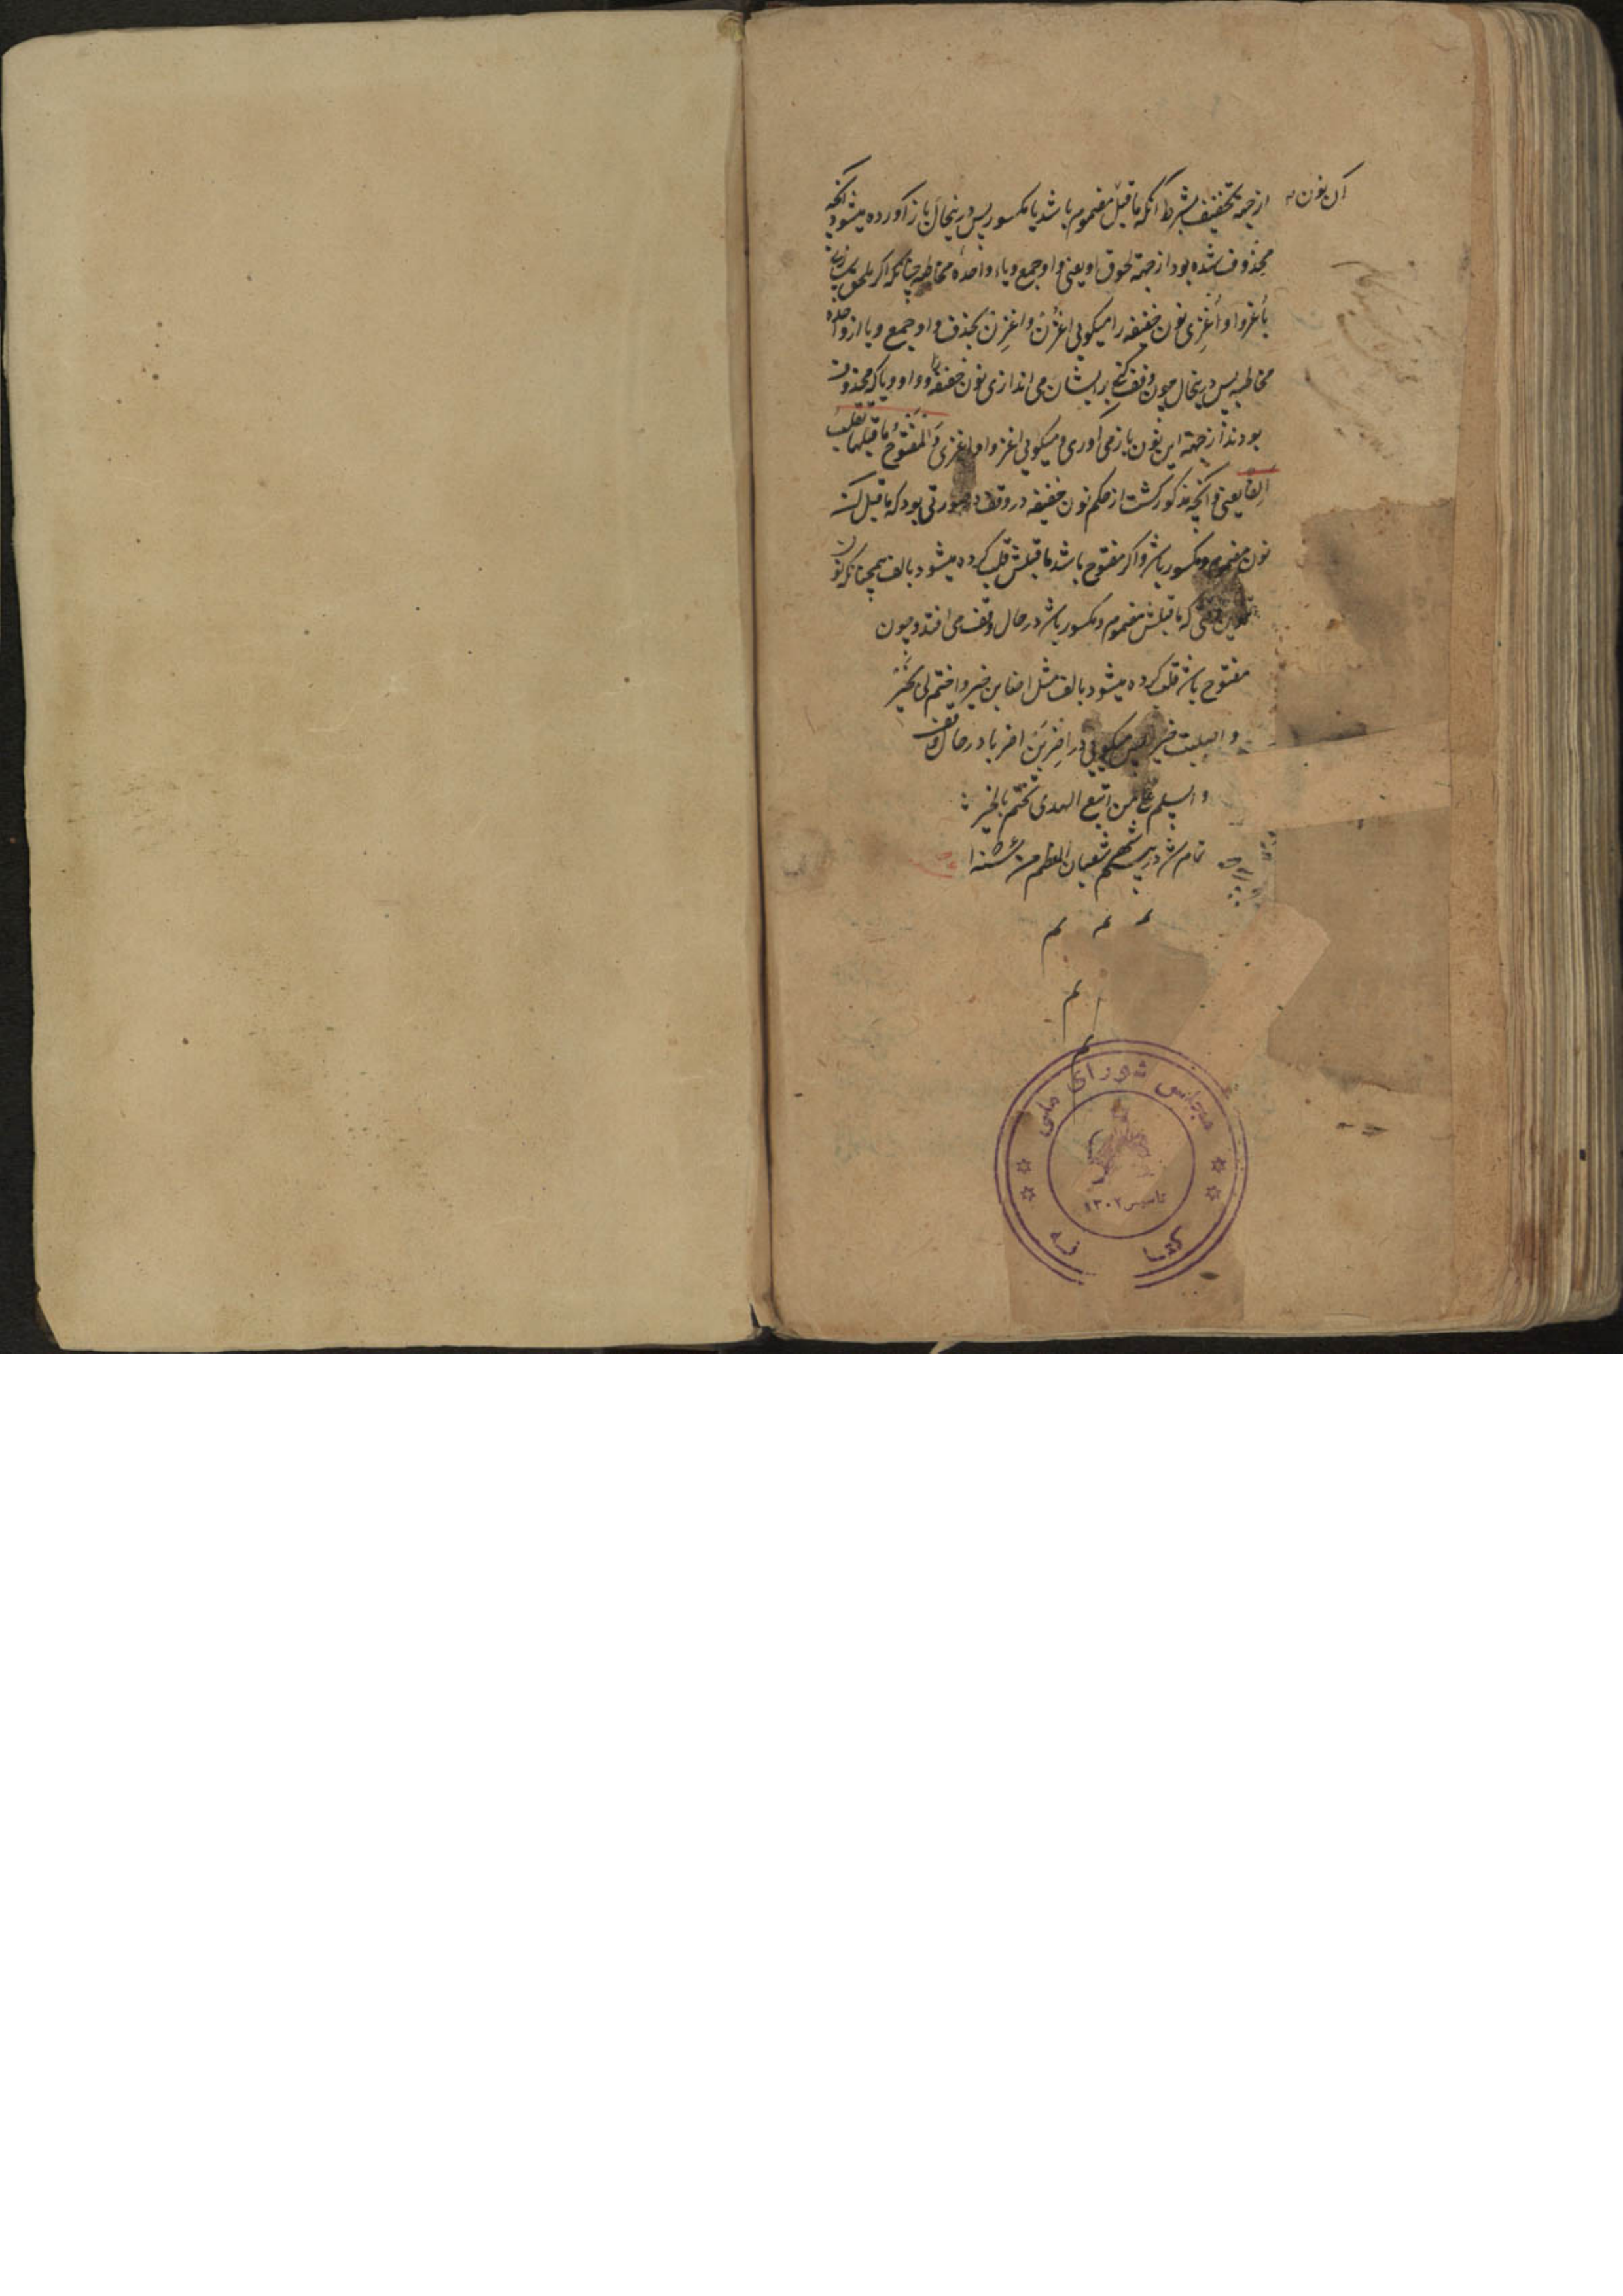 آن نون
از جهة تخفیف بشرط آنکه ماقبلش مضموم باشد یا مکسور پس درینحال باز آورده میشود آنچه
محذوف شده بود از جهة لحوق او یعنی واو جمع و یاء واحدهٔ مخاطبه چنانکه اگر ملحق سازی
باغزوا و اغزی نون خفیفه را میگویی اغزن و اغزن بحذف واو جمع و یا از واحده
مخاطبه پس درینحال چون وقف کنی بر ایشان می اندازی نون خفیفه را و واو و یا که محذوف
بودند از جهة این نون باز می آوری و میگویی اغزوا و اغزی و المفتوح ما قبلها تقلب
الفا یعنی و آنچه مذکور گشت از حکم نون خفیفه در وقف در صورتی بود که ماقبل آن
نون مضموم و مکسور باشد و اگر مفتوح باشد ماقبلش قلب کرده میشود بالف همچنانکه نون
تنوین که ماقبلش مضموم و مکسور باشد در حال وقف می افتد و چون
مفتوح باشد قلب کرده میشود بالف مثل اصابن خیر و اختم لی بخیر
خیرا پس میگویی در اضربن اضربا در حال وقف
و السلم علی من اتبع الهدی تختم بالخیر
تمام شد در شهر شعبان المعظم من
م م م
م
م
مجلس شورای ملی
تاسیس ۱۳۰۲
کتابخانه